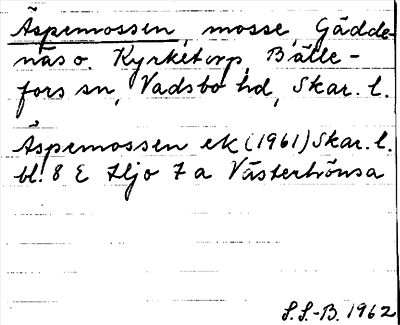 Äspemossen, mosse, Gädde-
näs o. Kyrketorp, Bälle-
fors sn, Vadsbo hd, Skar. l.
Äspemossen ek (1961) Skar. l.
bl. 8 E Hjo 7 a Västerhönsa
S.S.-B. 1962